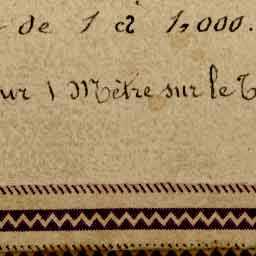 de 1 à 1,000.
ur 1 Mètre sur le T